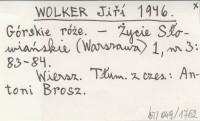 WOLKER Jiří 1946.
Górskie róże. – Życie Sło-
wiańskie (Warszawa) 1, nr 3:
83-84.
Wiersz. Tłum. z czes: An-
toni Brosz.